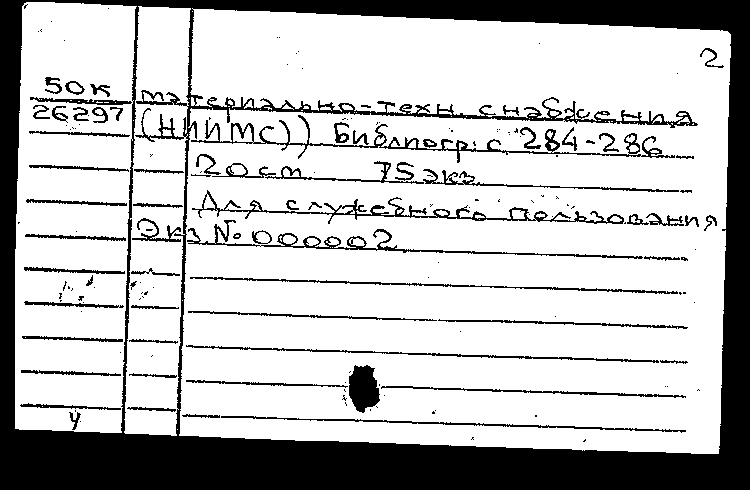 2
50К материально-техн. снабжения
26297 (НИИМС)) Библиогр: с 284-286
20 см 75 экз
Для служебного пользования
Экз № 000002
У